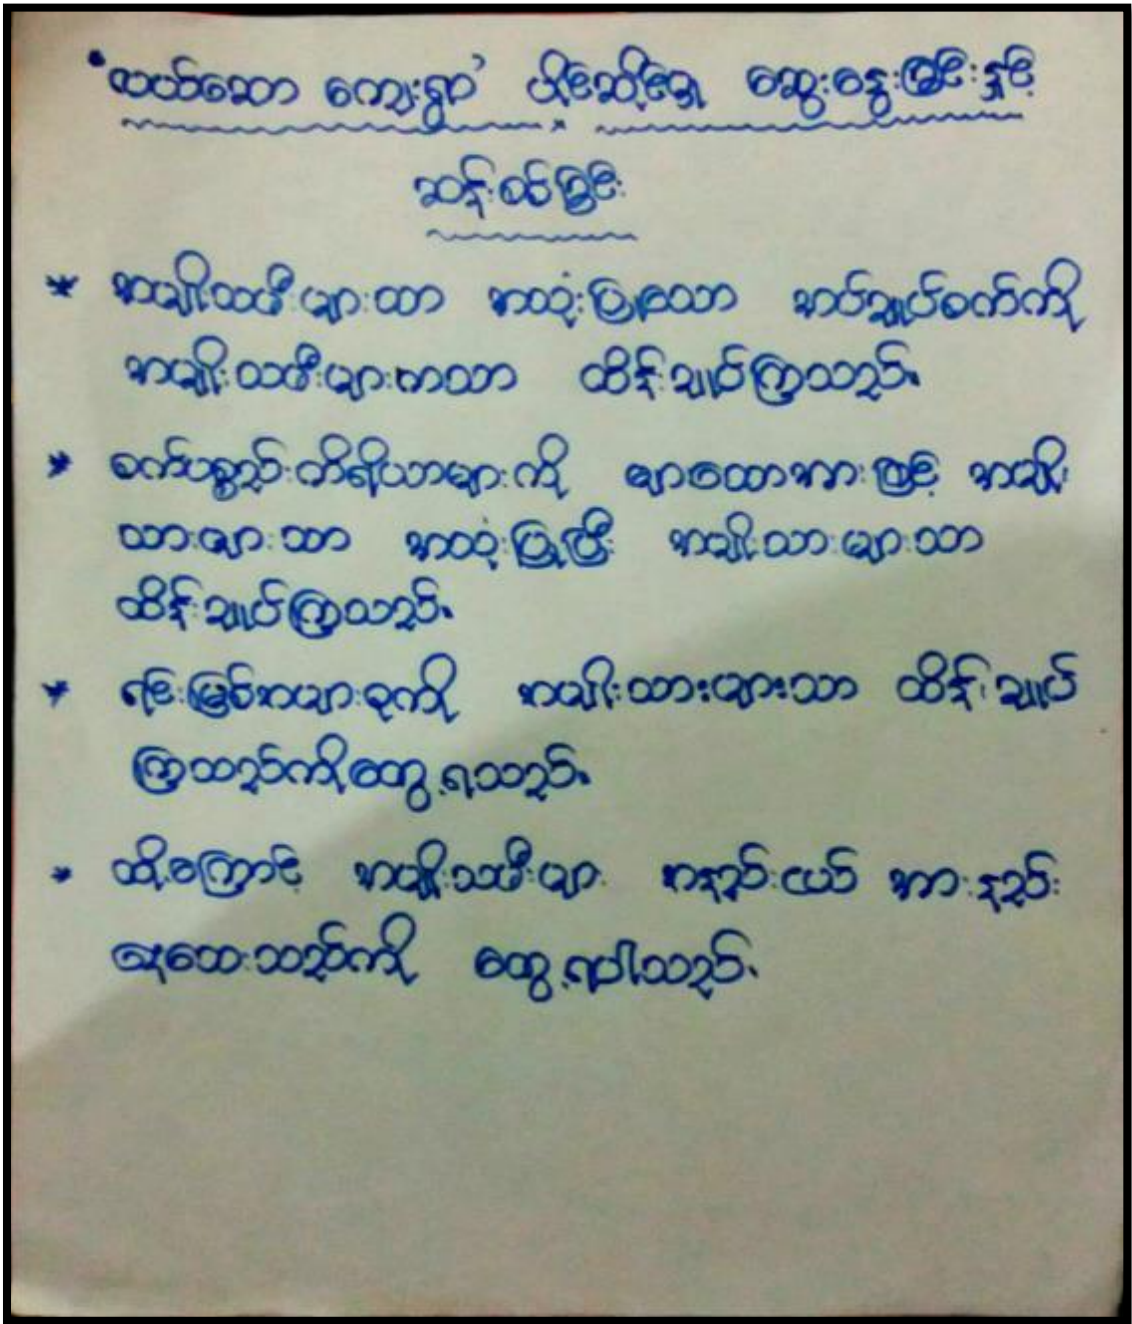 ‘လယ်ဆော ကျေးရွာ’ ပိုင်ဆိုင်မှု ဆွေးနွေးခြင်းနှင့်
ဆန်းစစ်ခြင်း
* အမျိုးသမီးများသာ အသုံးပြုသော အပ်ချုပ်စက်ကို
အမျိုးသမီးများကသာ ထိန်းချုပ်ကြသည်။
* စက်ပစ္စည်းကိရိယာများကို များသောအားဖြင့် အမျိုး
သားများသာ အသုံးပြုပြီး အမျိုးသားများသာ
ထိန်းချုပ်ကြသည်။
* ရင်းမြစ်အများစုကို အမျိုးသားများသာ ထိန်းချုပ်
ကြသည်ကိုတွေ့ရသည်။
* ထို့ကြောင့် အမျိုးသမီးများ အနည်းငယ် အားနည်း
နေသေးသည်ကို တွေ့ရပါသည်။